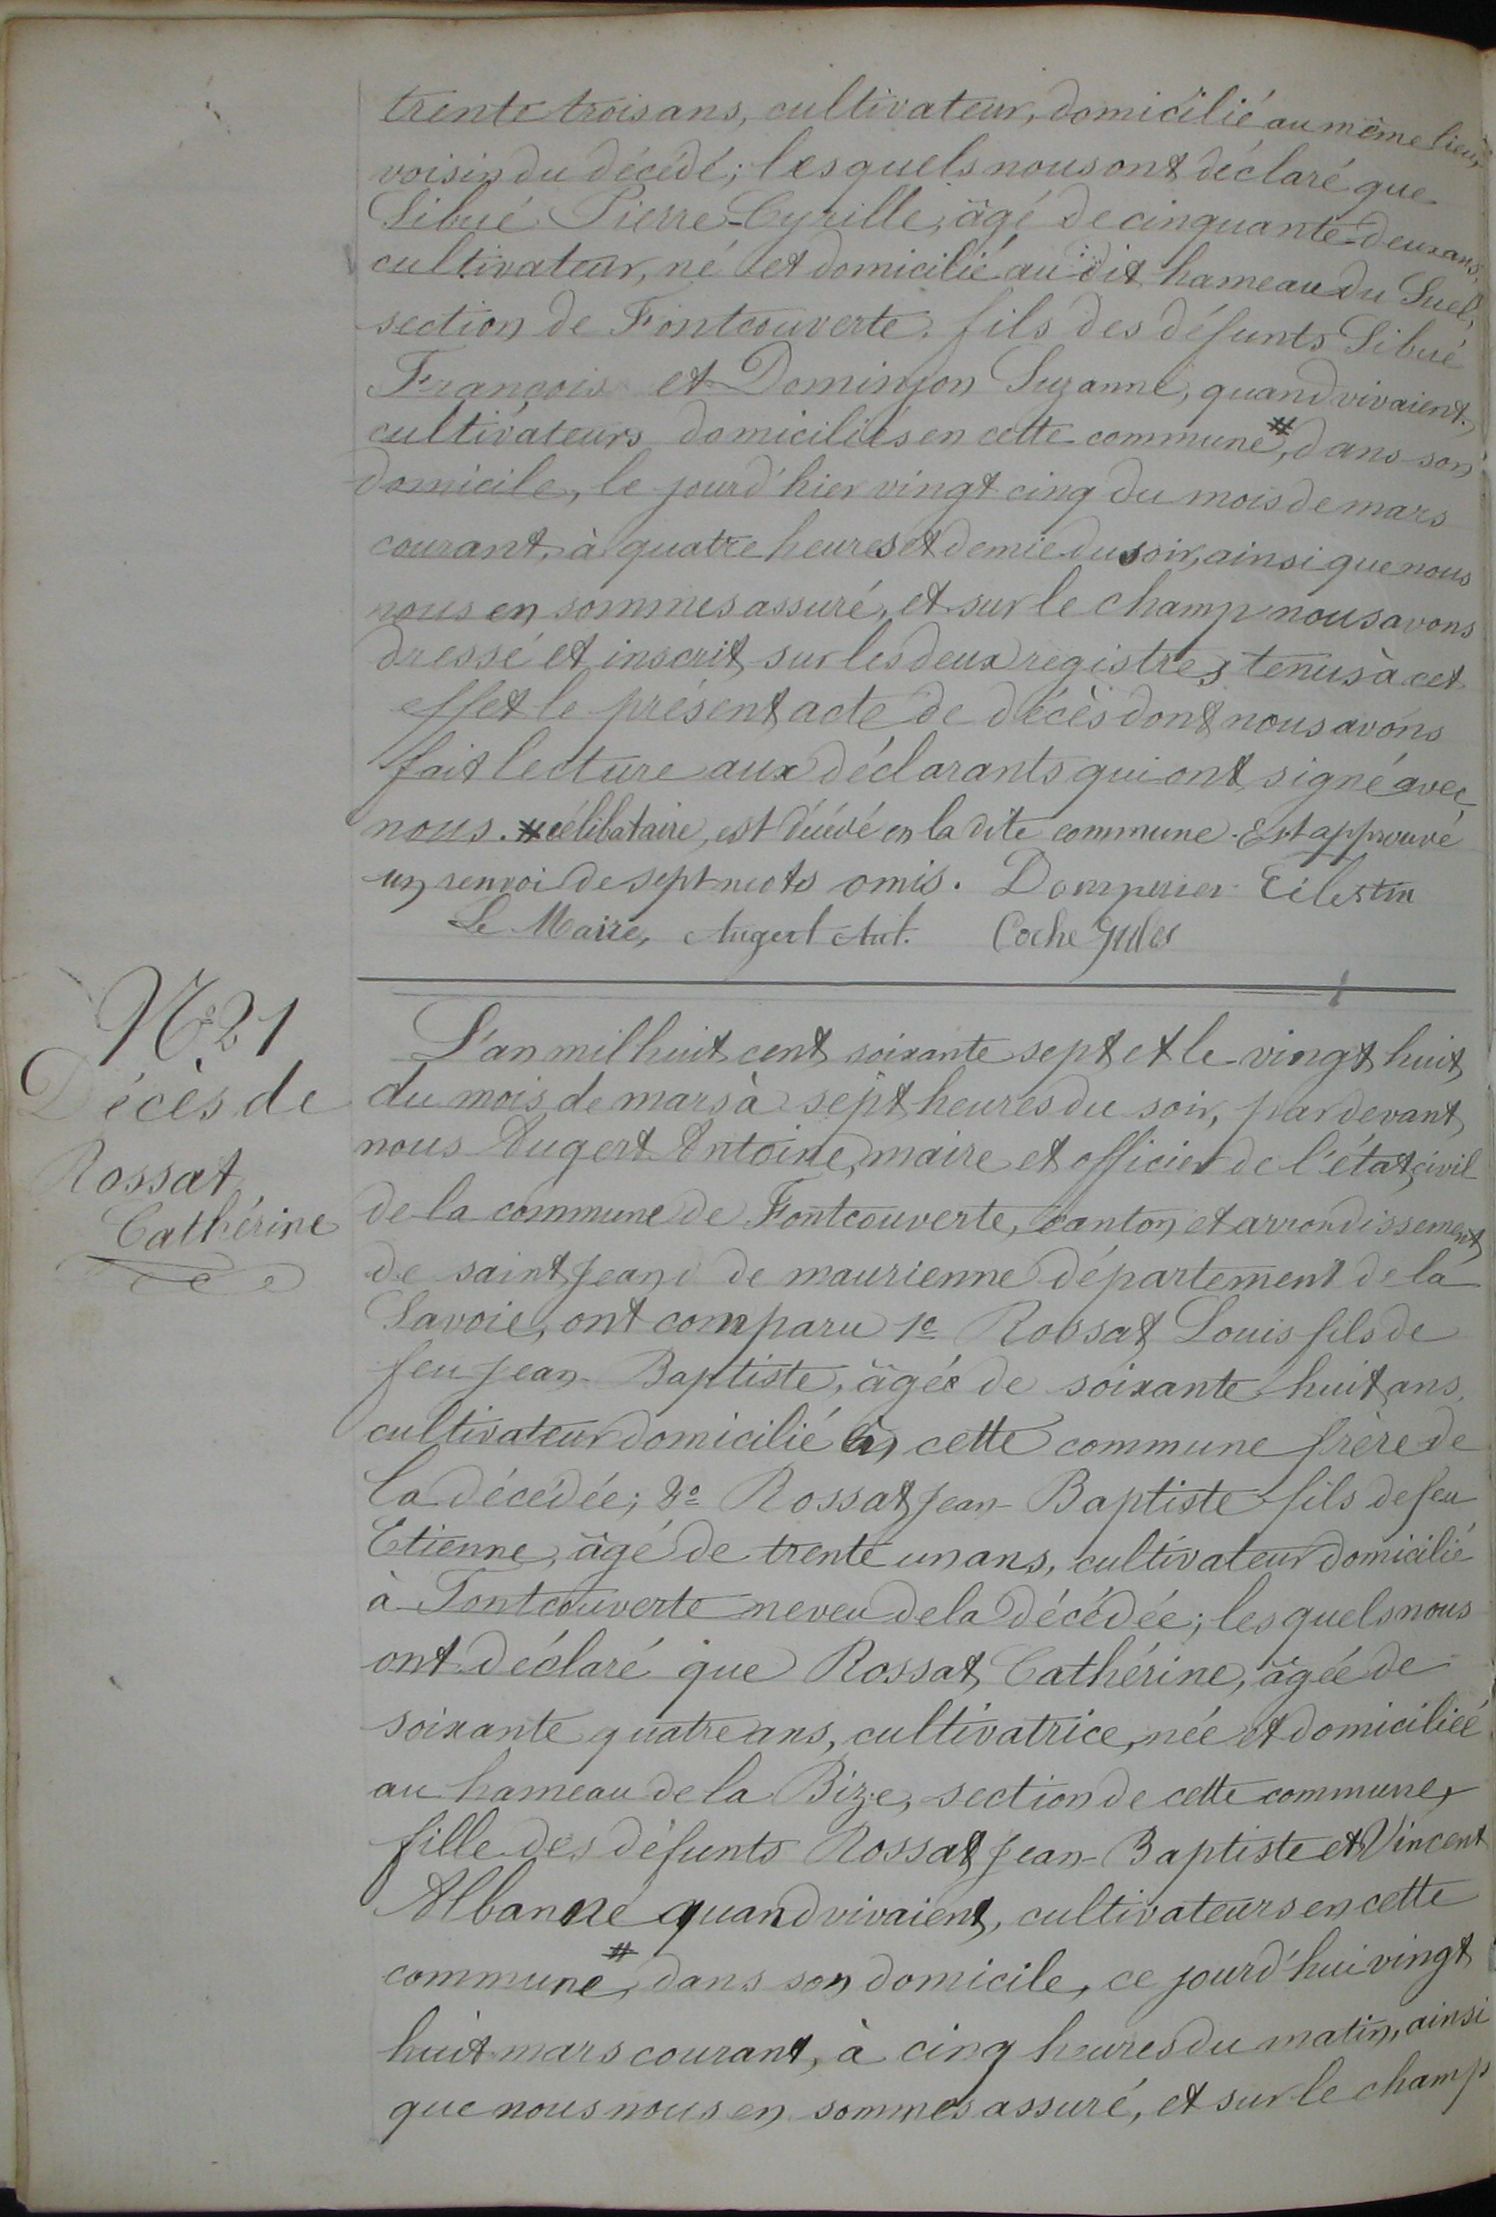 trente trois ans, cultivateur, domicilié au même lieu,
voisin du décédé; lesquels nous ont déclaré que
Sibué Pierre-Cyrille, âgé de cinquante-deux ans,
cultivateur, né et domicilié au dit hameau du Suel,
section de Fontcouverte. fils des défunts Sibué
François et Dominjon Suzanne, quand vivaient
cultivateurs domiciliés en cette commune #, dans son
domicile, le jourd'hier vingt cinq du mois de mars
courant, à quatre heures et demie du soir, ainsi que nous
nous en sommes assuré, et sur le champ nous avons
dressé et inscrit sur les deux registres tenus à cet
effet le présent acte de décès dont nous avons
fait lecture aux déclarants qui ont signé avec
nous. # célibataire, est décédé en la dite commune. Est approuvé
un renvoi de sept mots omis. Domperier Célestin
Le Maire, Augert Ant. Coche Jules
N° 21
Décès de
Rossat
Cathérine
L'an mil huit cent soixante sept et le vingt huit
du mois de mars à sept heures du soir, par devant
nous Augert Antoine, maire et officier de l'état civil
de la commune de Fontcouverte, canton et arrondissement
de saint Jean de maurienne département de la
Savoie, ont comparu 1° Rossat Louis fils de
feu Jean-Baptiste, âgé de soixante huit ans,
cultivateur domicilié en cette commune frère de
la décédée; 2° Rossat Jean-Baptiste fils de feu
Etienne, âgé de trente un ans, cultivateur domicilié
à Fontcouverte neveu de la décédée; lesquels nous
ont déclaré que Rossat Cathérine, âgée de
soixante quatre ans, cultivatrice, née et domiciliée
au hameau de la Bize, section de cette commune,
fille des défunts Rossat Jean-Baptiste et Vincent
Albanne quand vivaient, cultivateurs en cette
commune #, dans son domicile, ce jourd'hui vingt
huit mars courant, à cinq heures du matin, ainsi
que nous nous en sommes assuré, et sur le champ